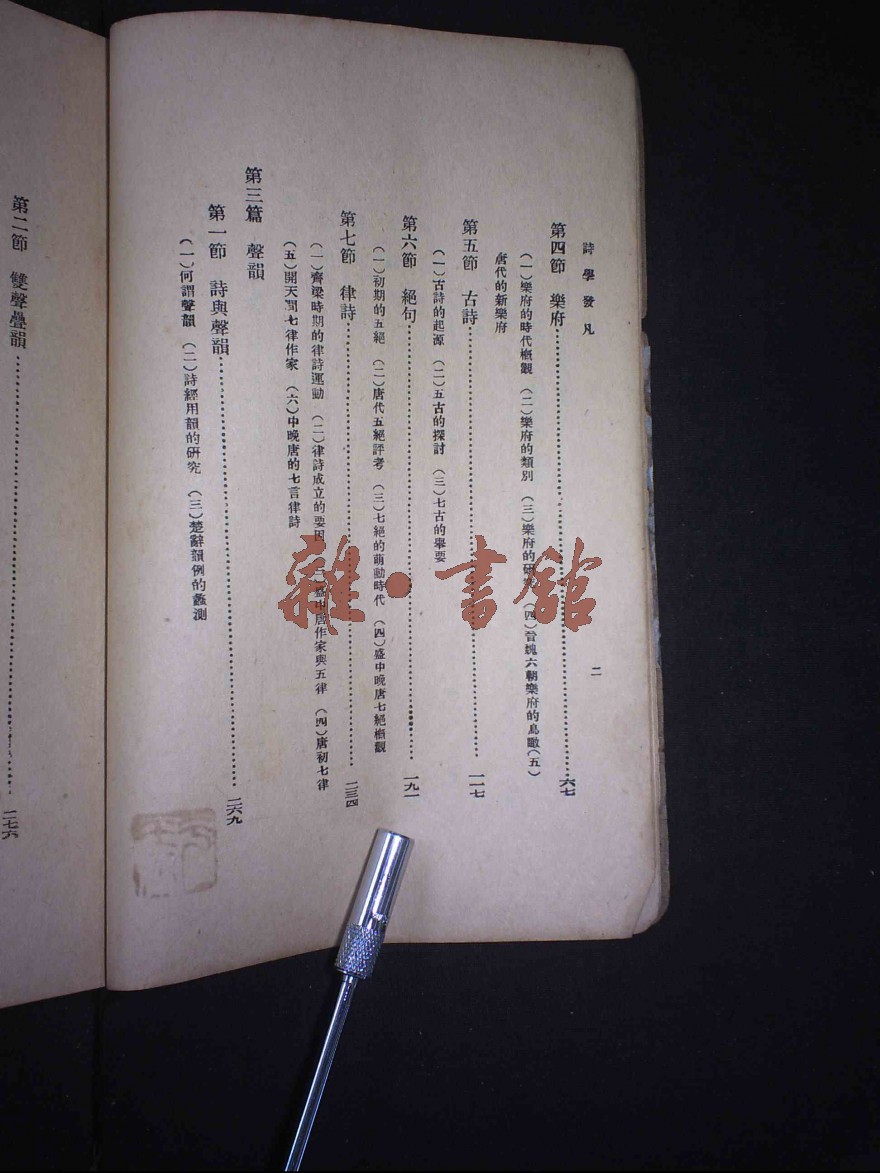 詩學發凡
二
第四節 樂府……六七
(一)樂府的時代概觀 (二)樂府的類別 (三)樂府的研 (四)晉魏六朝樂府的鳥瞰(五)
唐代的新樂府
第五節 古詩……一一七
(一)古詩的起源 (二)五古的探討 (三)七古的舉要
第六節 絕句……一九一
(一)初期的五絕 (二)唐代五絕評考 (三)七絕的萌動時代 (四)盛中晚唐七絕概觀
第七節 律詩……二三四
(一)齊梁時期的律詩運動 (二)律詩成立的要因 (三)盛中唐作家與五律 (四)唐初七律
(五)開天間七律作家 (六)中晚唐的七言律詩
第三篇 聲韻
第一節 詩與聲韻……二六九
(一)何謂聲韻 (二)詩經用韻的研究 (三)楚辭韻例的蠡測
第二節 雙聲疊韻……二七六
雜·書館